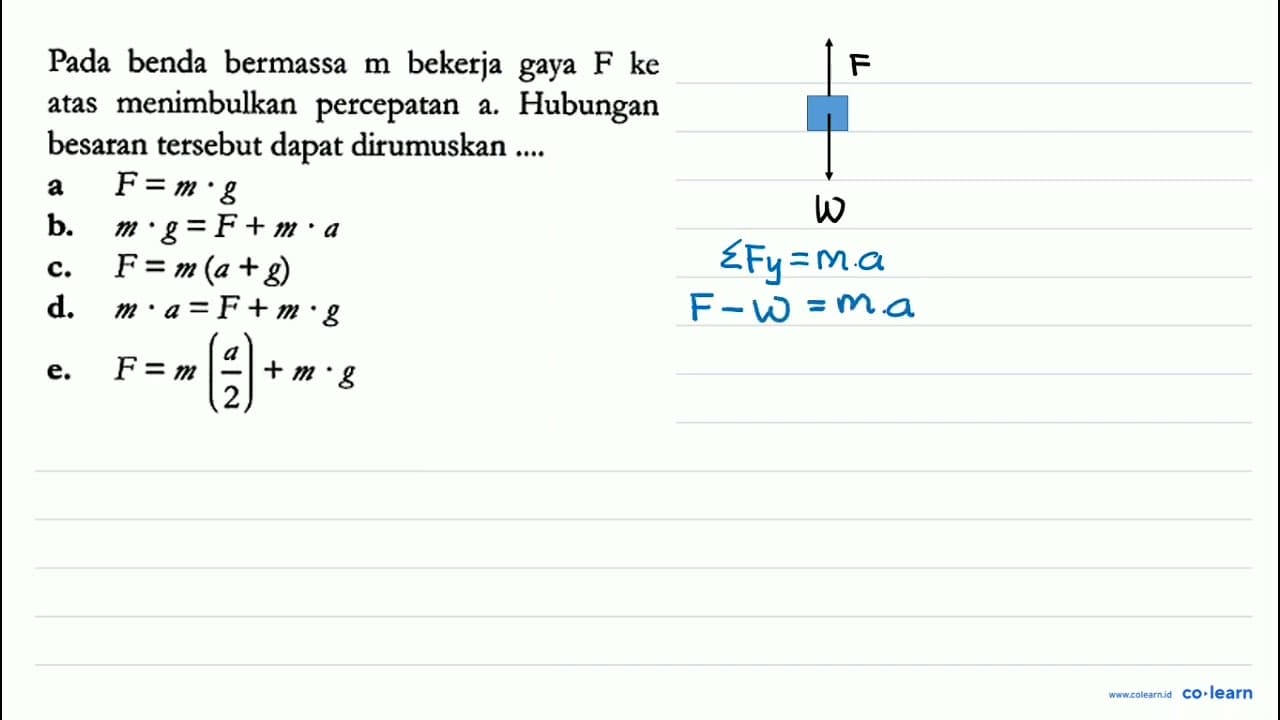 Pada benda bermassa m bekerja gaya F ke
atas menimbulkan percepatan a. Hubungan
besaran tersebut dapat dirumuskan ....
a F = m · g
b. m · g = F + m · a
c. F = m (a + g)
d. m · a = F + m · g
e. F = m (a/2) + m · g
F
W
ΣFy = m.a
F - W = m.a
www.colearn.id co·learn